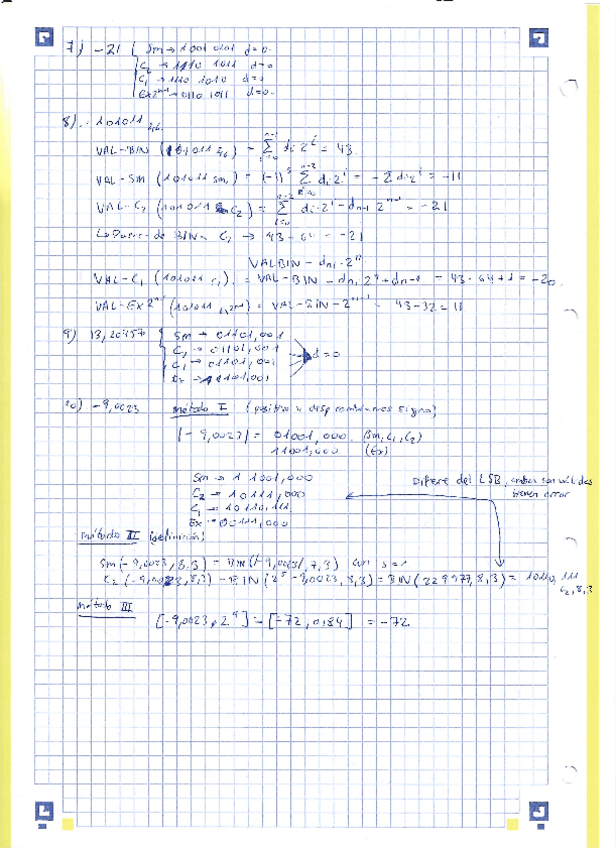 7) -21 { Sm → 1001 0101 d=0
C2 → 1110 1011 d=0
C1 → 1110 1010 d=0
Ex 2^n-1 → 0110 1011 d=0
8) 101011
VAL-BIN (101011) = Σ di·2^i = 43
VAL-SM (101011 sm) = (-1)^s Σ di·2^i = -Σ di 2^i = -11
VAL-C2 (101011 C2) = Σ di·2^i - dn-1 2^n-1 = -21
BIN 43-64 = -21
VALBIN - dn-1·2^n
VAL-C1 (101011 C1) = VAL-BIN - dn-1 2^n + dn-1 = 43-64+1 = -20
VAL-Ex 2^n-1 (101011) = VAL-BIN - 2^n-1 = 43-32 = 11
9) 13,20457 { Sm → 01101,001
C2 → 01101,001
C1 → 01101,001
Ex → 11101,001
d=0
10) -9,0023 método I (positivo y signo)
|-9,0023| = 01001,000 (Sm, C1, C2)
11001,000 (Ex)
Sm → 11001,000
C2 → 10111,000
C1 → 10110,111
Ex → 00111,000
Difiere del LSB, ambas son válidas
tienen error
método II (definición)
Sm(-9,0023,8,3) = BIN(|-9,0023|,7,3) con s=1
C2(-9,0023,8,3) = BIN(2^5 -9,0023,8,3) = BIN(22,9977,8,3) = 10110,111 C2,8,3
método III
[-9,0023·2^3] = [-72,0184] = -72